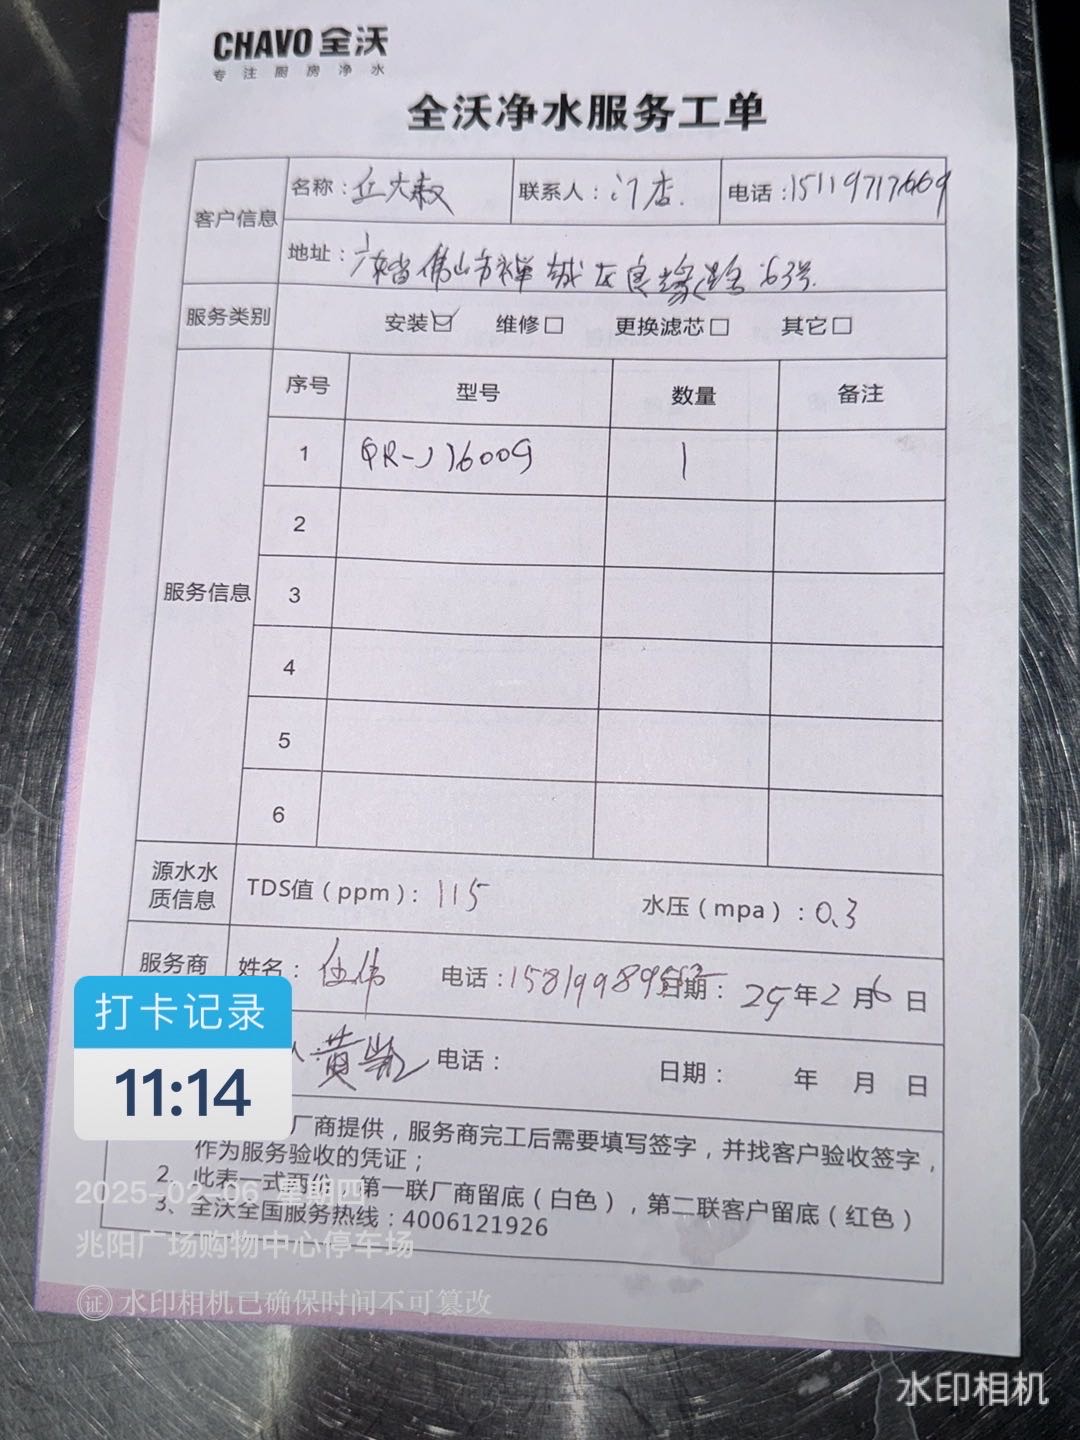 CHAVO 全沃
专注厨房净水
全沃净水服务工单
客户信息
名称：丘大叔 联系人：门店. 电话：15119717669
地址：广东省佛山市禅城区良缘路63号.
服务类别 安装☑ 维修□ 更换滤芯□ 其它□
服务信息
序号 型号 数量 备注
1 QR-J1600G 1
2
3
4
5
6
源水水质信息
TDS值（ppm）：115 水压（mpa）：0.3
服务商 姓名：伍伟 电话：158199895 日期：25年2月6日
黄凯 电话： 日期： 年 月 日
厂商提供，服务商完工后需要填写签字，并找客户验收签字，
作为服务验收的凭证；
2、此表一式两份，第一联厂商留底（白色），第二联客户留底（红色）
3、全沃全国服务热线：4006121926
打卡记录
11:14
2025-02-06 星期四
兆阳广场购物中心停车场
证 水印相机已确保时间不可篡改
水印相机